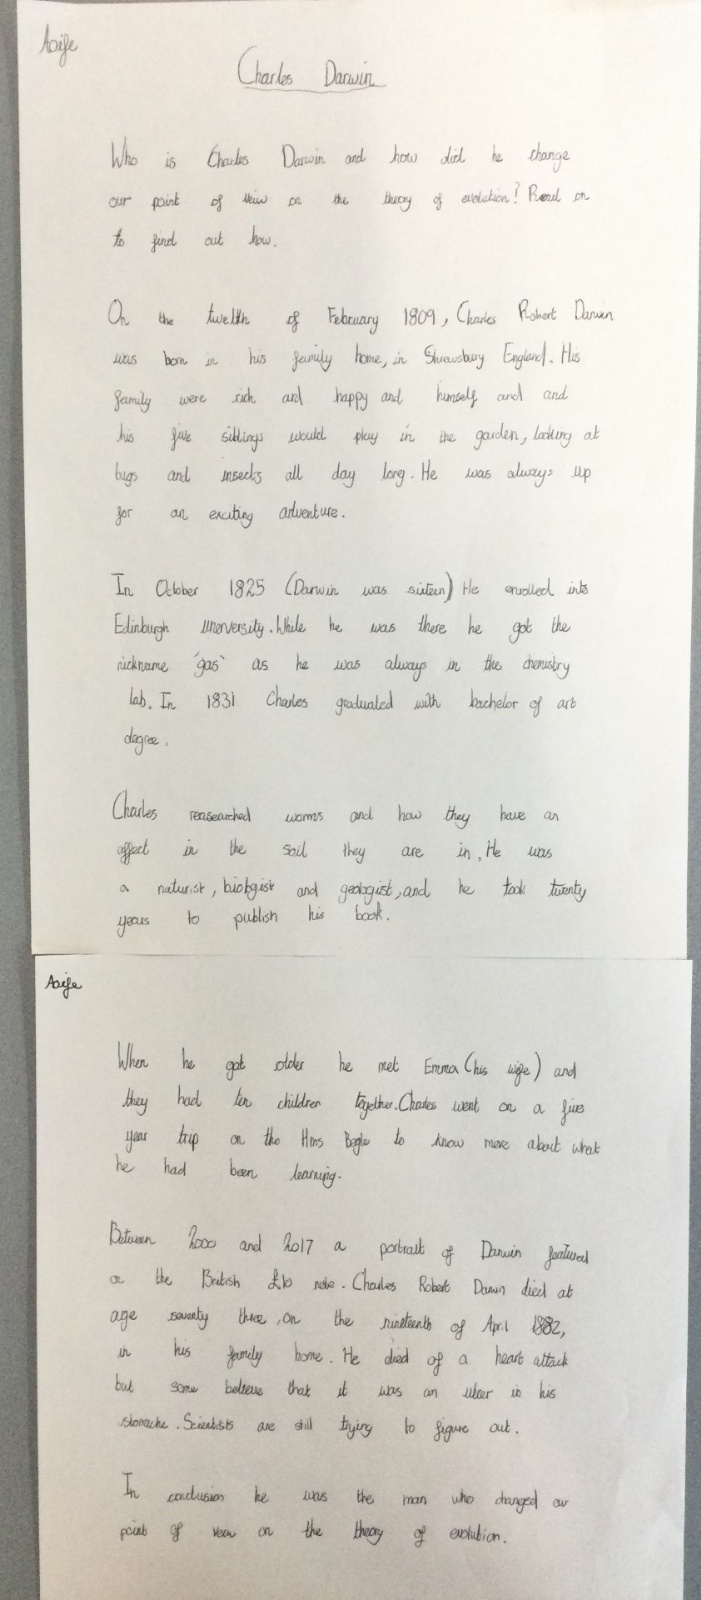 Aoife
Charles Darwin
Who is Charles Darwin and how did he change
our point of veiw on the theory of evolution? Read on
to find out how.
On the twelth of February 1809, Charles Robert Darwin
was born in his family home, in Shrewsbury England. His
family were rich and happy and himself and and
his five siblings would play in the garden, looking at
bugs and insects all day long. He was always up
for an exciting adventure.
In October 1825 (Darwin was sixteen) He enrolled into
Edinburgh unerversity. While he was there he got the
nickname 'gas' as he was always in the chemistry
lab. In 1831 Charles graduated with bachelor of art
degree.
Charles reasearched worms and how they have an
affect in the soil they are in. He was
a naturist, biologist and geologist, and he took twenty
years to publish his book.
Aoife
When he got older he met Emma (his wife) and
they had ten children together. Charles went on a five
year trip on the Hms Begle to know more about what
he had been learning.
Between 2000 and 2017 a portrait of Darwin featured
on the British £10 note. Charles Robert Darwin died at
age seventy three, on the nineteenth of April 1882,
in his family home. He died of a heart attack
but some believe that it was an ulcer in his
stomache. Scientists are still trying to figure out.
In conclusion he was the man who changed our
point of veiw on the theory of evolution.